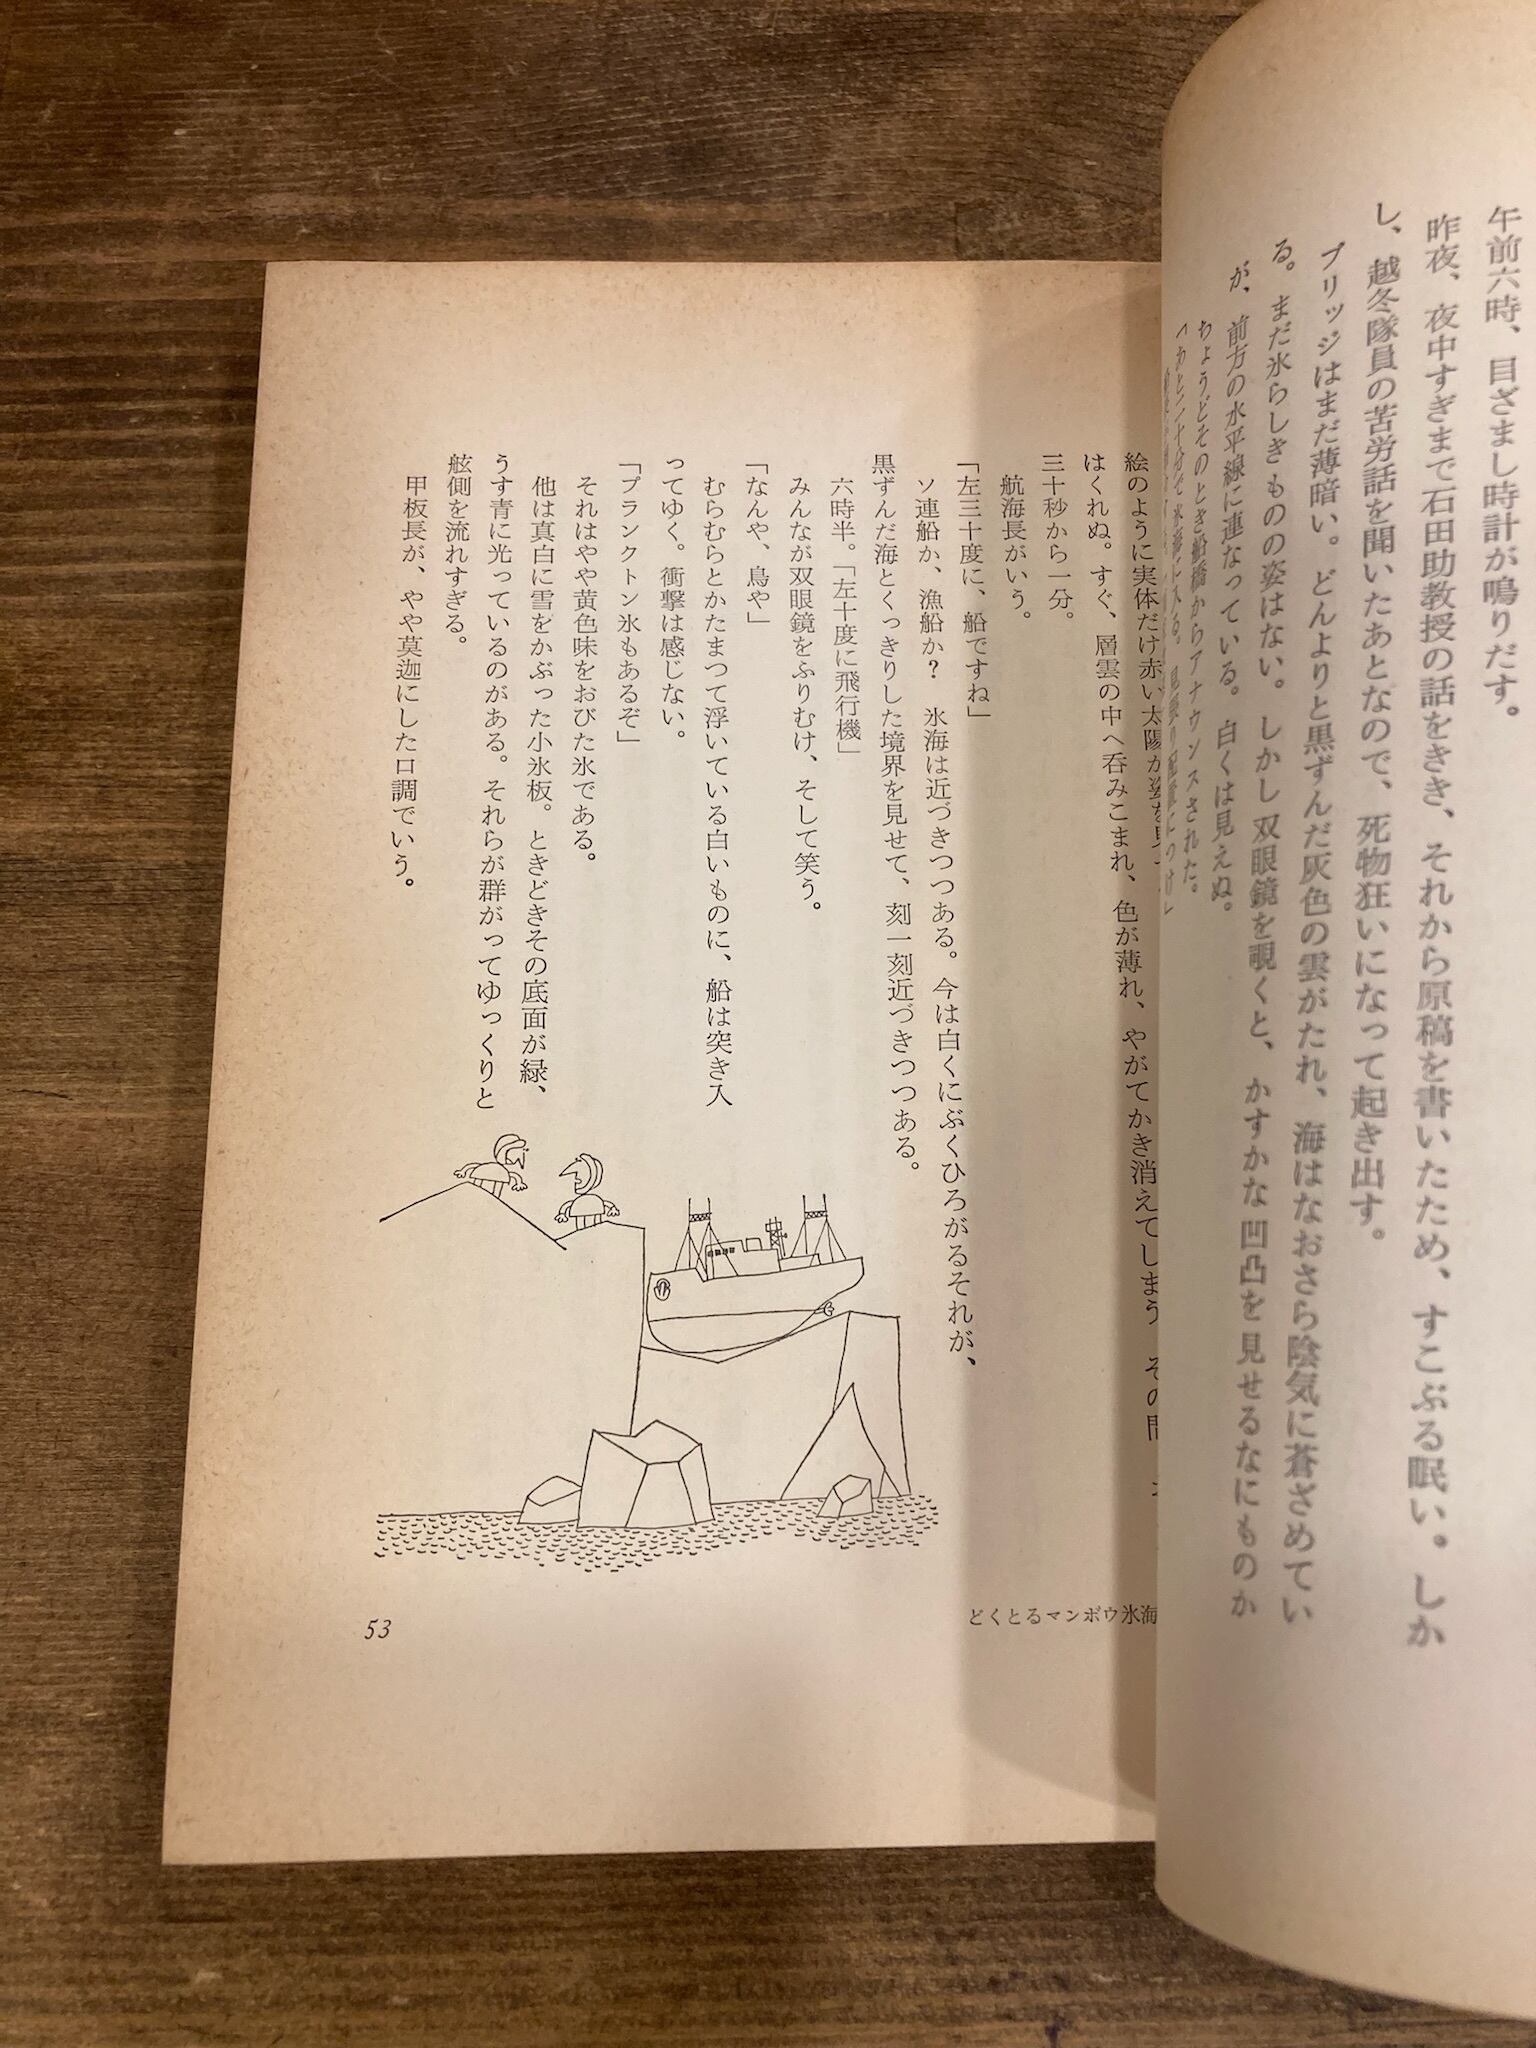 午前六時、目ざまし時計が鳴りだす。
昨夜、夜中すぎまで石田助教授の話をきき、それから原稿を書いたため、すこぶる眠い。しか
し、越冬隊員の苦労話を聞いたあとなので、死物狂いになって起き出す。
ブリッジはまだ薄暗い。どんよりと黒ずんだ灰色の雲がたれ、海はなおさら陰気に蒼ざめてい
る。まだ氷らしきものの姿はない。しかし双眼鏡を覗くと、かすかな凹凸を見せるなにものか
が、前方の水平線に連なっている。白くは見えぬ。
ちょうどそのとき船橋からアナウンスされた。
絵のように実体だけ赤い太陽が姿を
はくれぬ。すぐ、層雲の中へ呑みこまれ、色が薄れ、やがてかき消えてしまう
三十秒から一分。
航海長がいう。
「左三十度に、船ですね」
ソ連船か、漁船か？　氷海は近づきつつある。今は白くにぶくひろがるそれが、
黒ずんだ海とくっきりした境界を見せて、刻一刻近づきつつある。
六時半。「左十度に飛行機」
みんなが双眼鏡をふりむけ、そして笑う。
「なんや、鳥や」
むらむらとかたまつて浮いている白いものに、船は突き入
ってゆく。衝撃は感じない。
「プランクトン氷もあるぞ」
それはやや黄色味をおびた氷である。
他は真白に雪をかぶった小氷板。ときどきその底面が緑、
うす青に光っているのがある。それらが群がってゆっくりと
舷側を流れすぎる。
甲板長が、やや莫迦にした口調でいう。
どくとるマンボウ氷海
53